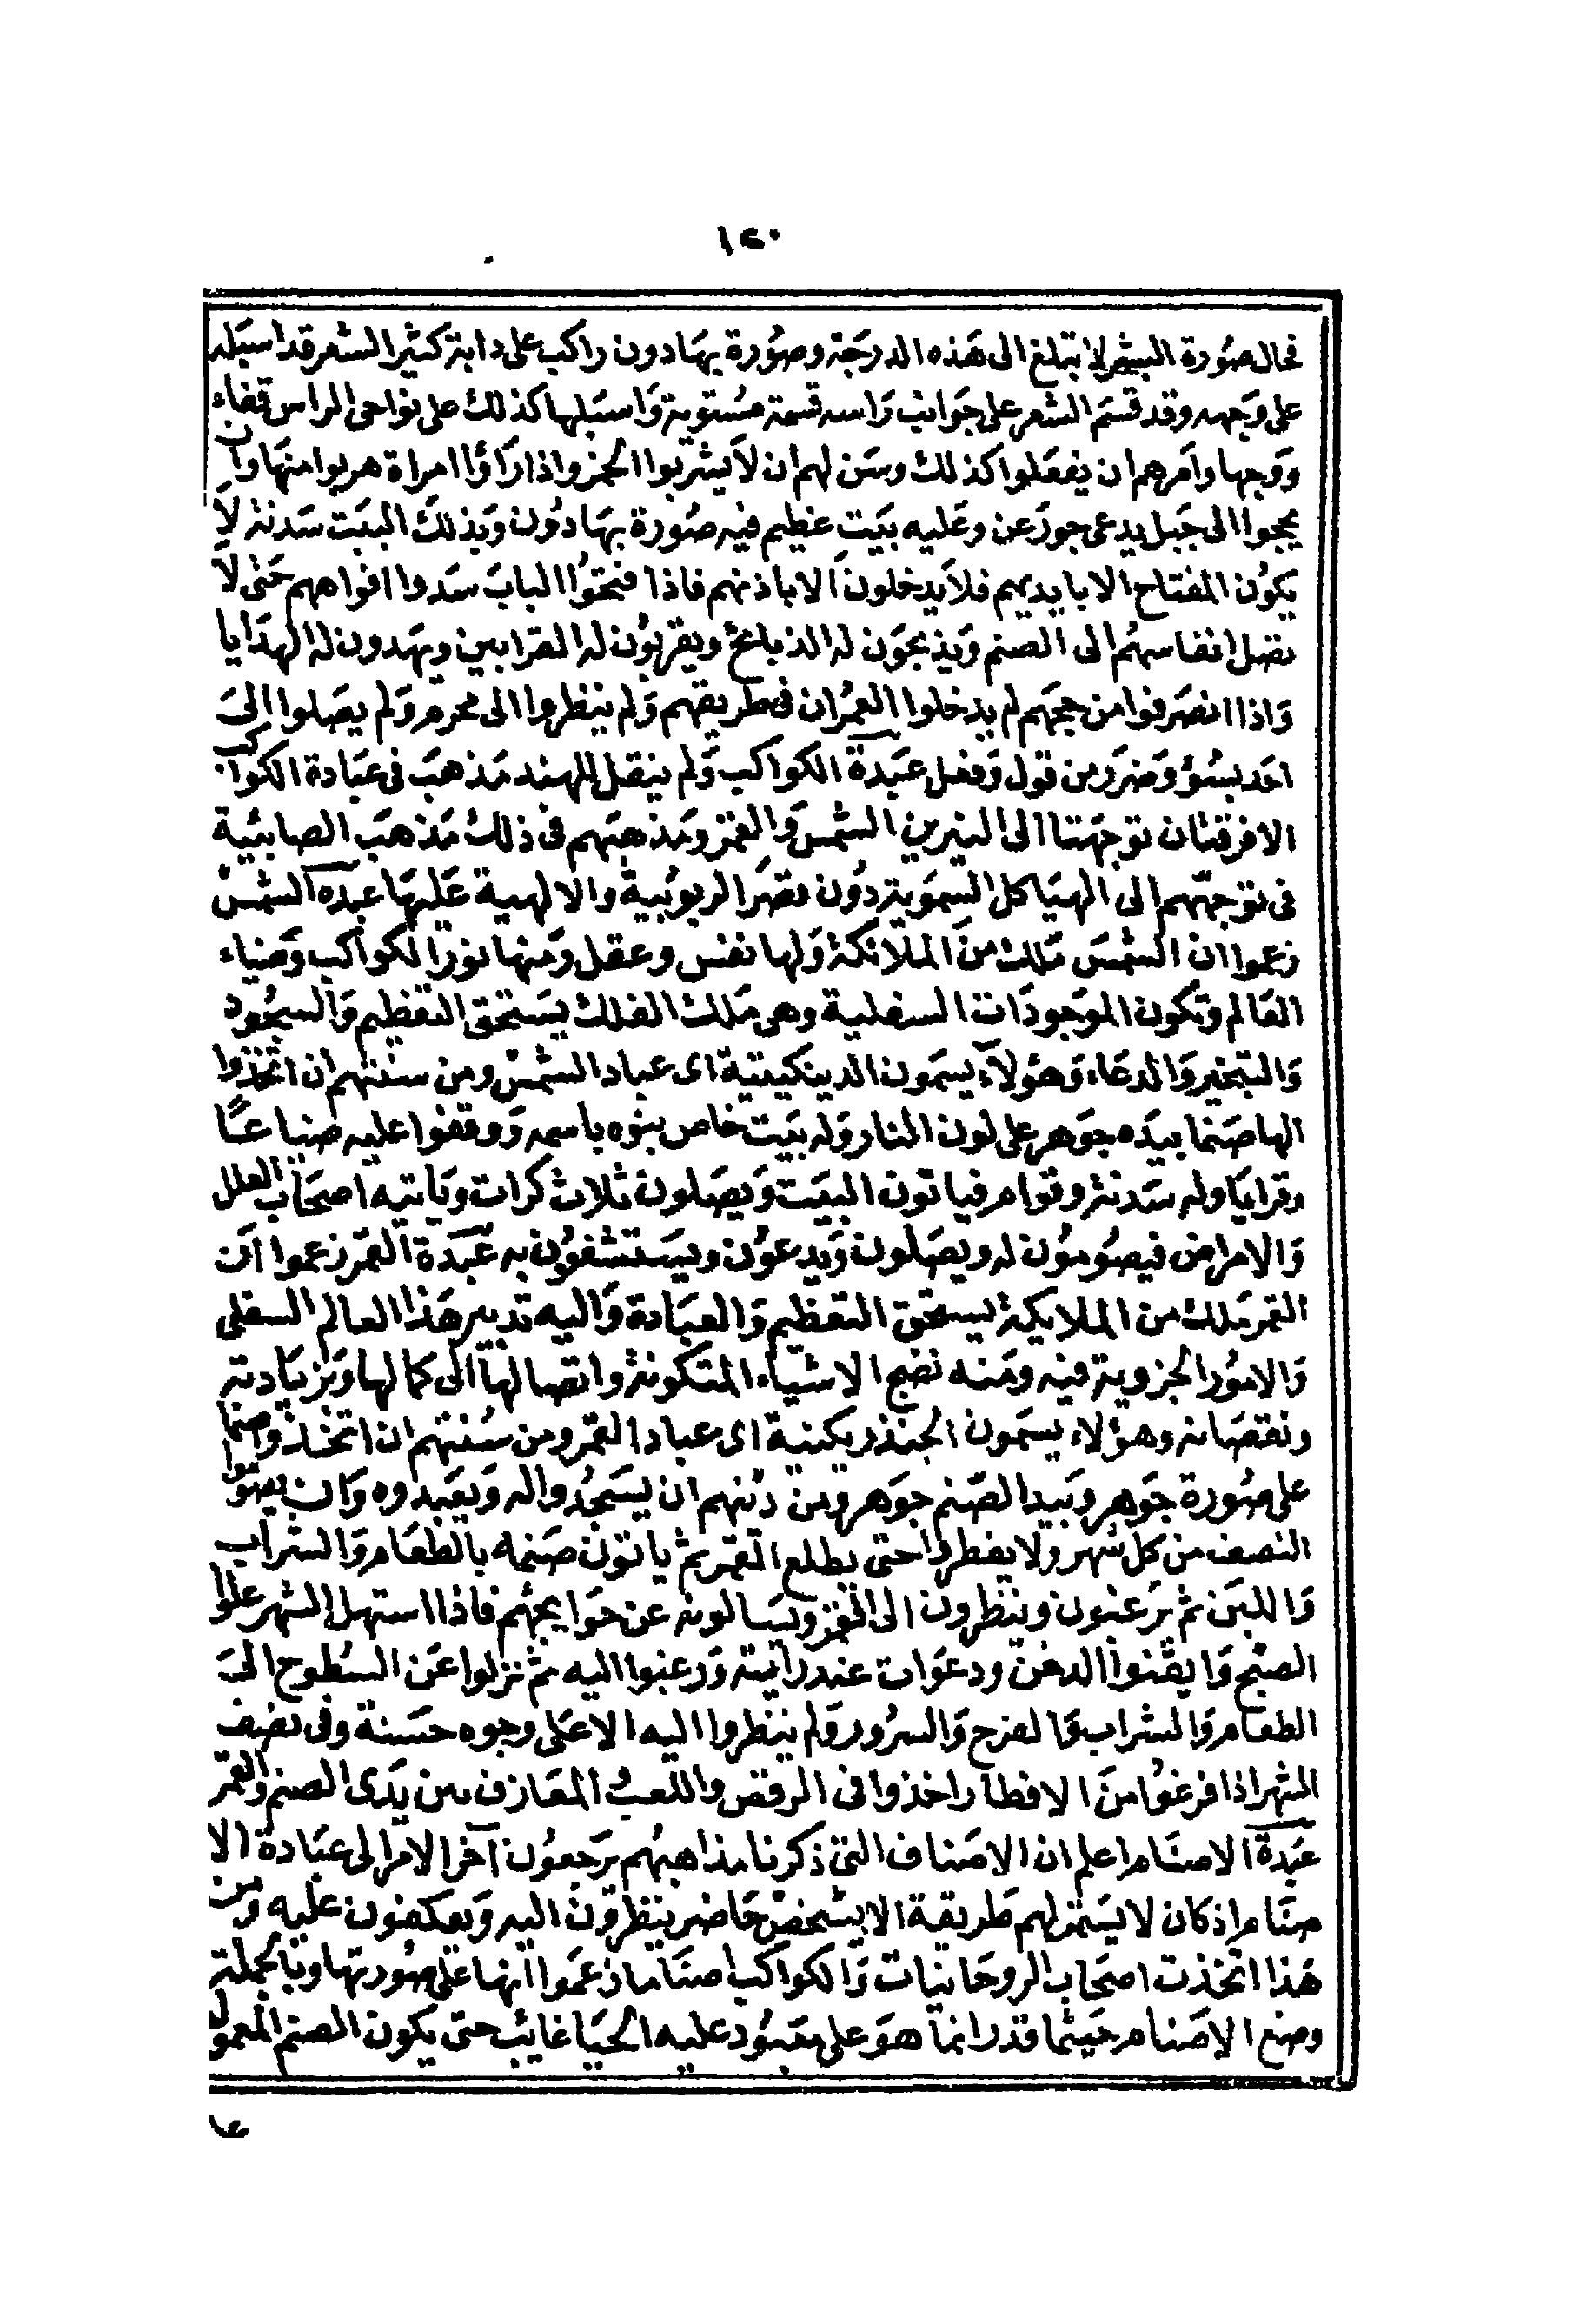 ١٤٠
فحال صورة البشر لا تبلغ الى هذه الدرجة وصورة بهادون راكب على دابة كثير الشعر قد اسبله
على وجهه وقد قسم الشعر على جوانب راسه قسمة مستوية واسبلها كذلك على نواحى الراس قفاء
ووجها وامرهم ان يفعلوا كذلك وسن لهم ان لا يشربوا الخمر واذا راؤا امراة هربوا منها وان
يحجوا الى جبل يدعى جورعن وعليه بيت عظيم فيه صورة بهادون وبذلك البيت سدنة لا
يكون المفتاح الا بايديهم فلا يدخلون الا باذنهم فاذا فتحوا الباب سدوا افواههم حتى لا
تصل انفاسهم الى الصنم ويذبحون له الذبائح ويقربون له القرابين ويهدون له الهدايا
واذا انصرفوا من حجهم لم يدخلوا العمران فى طريقهم ولم ينظروا الى محرم ولم يصلوا الى
احد بسؤ وضرر من قول وفعل عبدة الكواكب ولم ينقل للهند مذهب فى عبادة الكواكب
الا فرقتان توجهتا الى النيرين الشمس والقمر ومذهبهم فى ذلك مذهب الصابئية
فى توجههم الى الهياكل السموية دون قصر الربوبية والالهية عليها عبدة الشمس
زعموا ان الشمس ملك من الملائكة ولها نفس وعقل ومنها نور الكواكب وضياء
العالم وتكون الموجودات السفلية وهى ملك الفلك يستحق التعظيم والسجود
والتبخير والدعاء وهؤلاء يسمون الدينكيتية اى عباد الشمس ومن سنتهم ان اتخذوا
الها صنما بيده جوهر على لون النار وله بيت خاص بنوه باسمه ووقفوا عليه ضياعا
وقرايا وله سدنة وقوام فياتون البيت ويصلون ثلاث كرات وياتيه اصحاب العلل
والامراض فيصومون له ويصلون ويدعون ويستشفون به عبدة القمر زعموا ان
القمر ملك من الملايكة يستحق التعظيم والعبادة واليه تدبير هذا العالم السفلى
والامور الجزوية فيه ومنه نضج الاشياء المتكونة واتصالها الى كمالها وبزيادته
ونقصانه وهؤلاء يسمون الجندريكنية اى عباد القمر ومن سنتهم ان اتخذوا صنما
على صورة جوهر وبيد الصنم جوهر ومن دينهم ان يسجدوا له ويعبدوه وان يصوموا
النصف من كل شهر ولا يفطروا حتى يطلع القمر ثم ياتون صنمه بالطعام والشراب
واللبن ثم يرغبون وينظرون الى القمر ويسالونه عن حوايجهم فاذا استهل الشهر علوا
الصبح وايقنوا الدخن ودعوات عند رايته ورغبوا اليه ثم نزلوا عن السطوح الى
الطعام والشراب والفرح والسرور ولم ينظروا اليه الا على وجوه حسنة وفى نصف
الشهر اذا فرغوا من الافطار اخذوا فى الرقص واللعب والمعازف بين يدى الصنم والقمر
عبدة الاصنام اعلم ان الاصناف التى ذكرنا مذاهبهم يرجعون آخر الامر الى عبادة الا
صنام اذ كان لا يستمر لهم طريقة الا بشخص حاضر ينظرون اليه ويعكفون عليه ومن
هذا اتخذت اصحاب الروحانيات والكواكب اصناما زعموا انها على صورتها وبالجملة
وضع الاصنام حيثما قدر انما هو على معبود عليه الحيا غائب حتى يكون الصنم المعمول